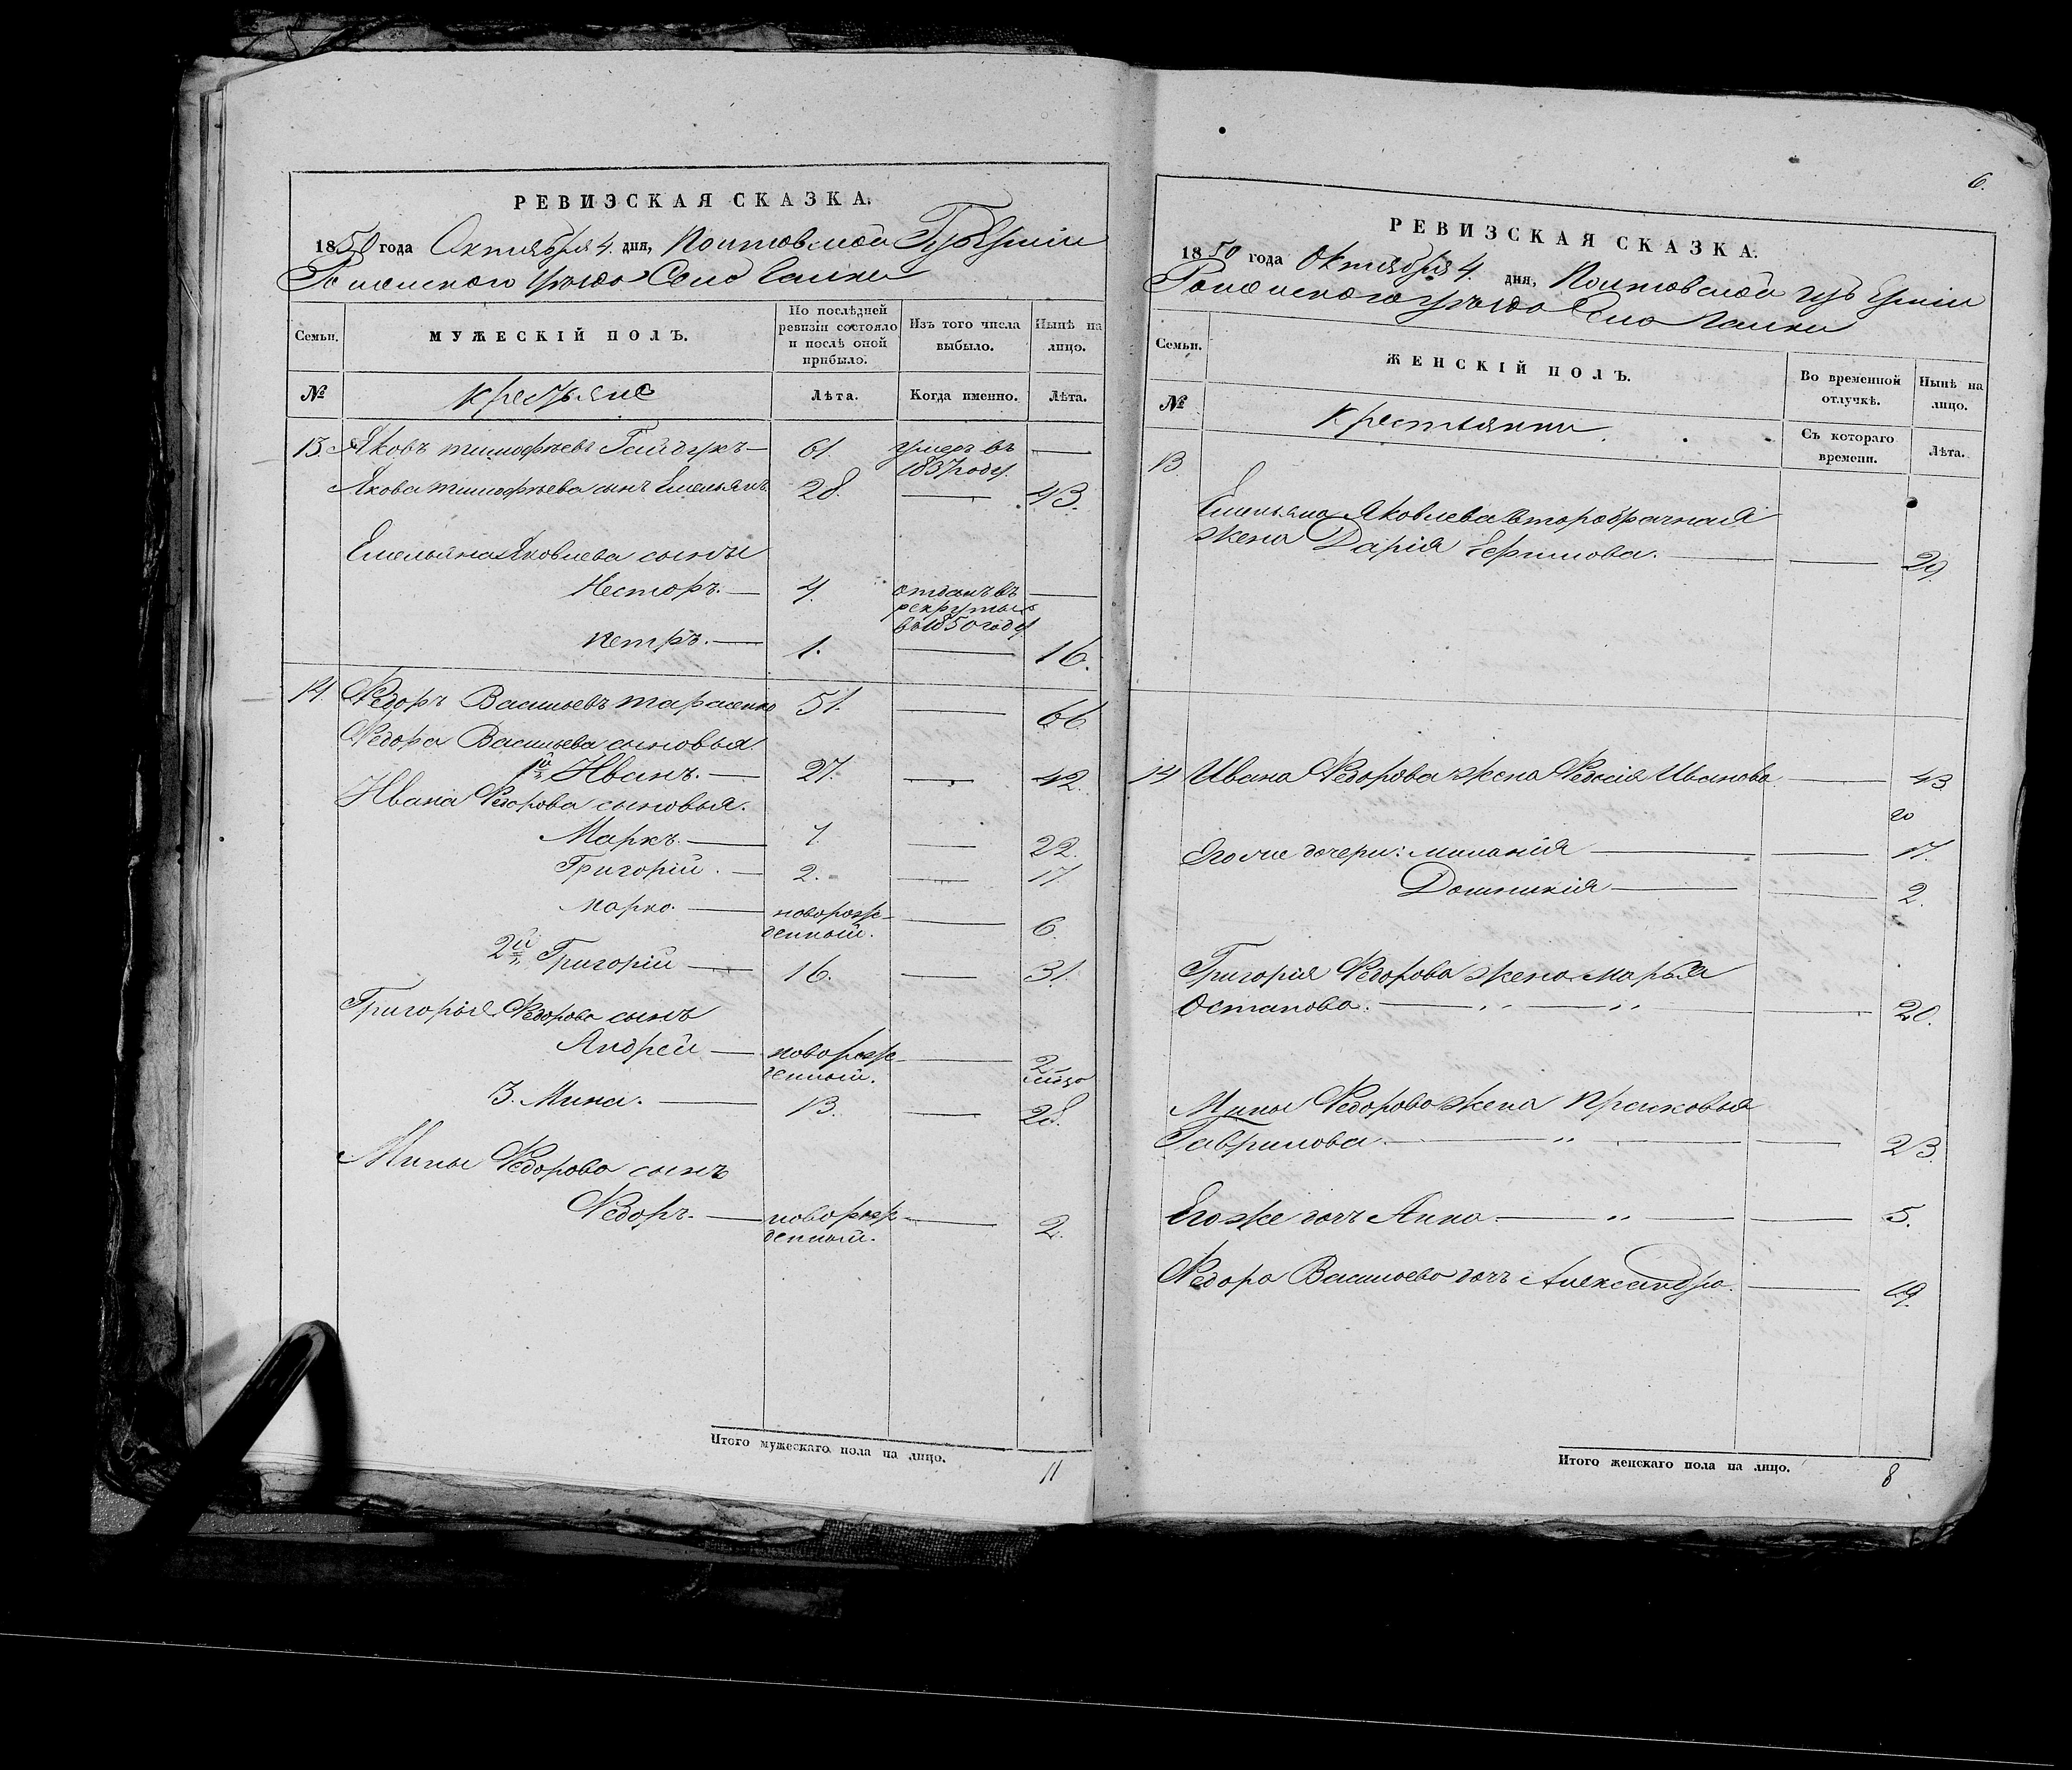 РЕВИЗСКАЯ СКАЗКА.
1850 года Октября 4. дня, Полтавской Губерніи
Роменскаго уѣзда Село Галки
Семьи. МУЖЕСКІЙ ПОЛЪ. По послѣдней ревизіи состояло и послѣ оной прибыло. Изъ того числа выбыло. Нынѣ на лицо.
№ Крестьяне Лѣта. Когда именно. Лѣта.
13. Яковъ Тимофѣевъ Гайдукъ — 61. умеръ въ 1837 году —
Якова Тимофѣева сынъ Емельянъ 28. — 43.
Емельяна Яковлева сыны
Несторъ. — 4. отданъ въ рекруты въ 1850 году —
Петръ. — 1. — 16.
14. Федоръ Васильевъ Тарасенко 51. — 66
Федора Васильева сыновья
1й Иванъ. — 27. — 42.
Ивана Федорова сыновья.
Маркъ. — 7. — 22.
Григорій. — 2. — 17.
Марко. — новорожденный. — 6.
2й Григорій — 16. — 31.
Григорія Федорова сынъ
Андрей — новорожденный. — 2
3. Мина. — 13. — 28.
Мины Федорова сынъ
Федоръ. — новорожденный. — 2.
Итого мужескаго пола на лицо. 11
6.
РЕВИЗСКАЯ СКАЗКА.
1850 года Октября 4. дня, Полтавской Губерніи
Роменскаго уѣзда Село Галки
Семьи. ЖЕНСКІЙ ПОЛЪ. Во временной отлучкѣ. Нынѣ на лицо.
№ Крестьянки. Съ котораго времени. Лѣта.
13
Емельяна Яковлева второбрачная
жена Дарія Ефимова. — — 29
14 Ивана Федорова жена Федосія Иванова — 43
20
Его же дочери: Миланія — — 17.
Домникія — — 2.
Григорія Федорова жена Марья
Остапова. — „ — „ — — 20.
Мины Федорова жена Прасковья
Гаврилова. — „ — — 23.
Его же дочь Анна — „ — — 5.
Федора Васильева дочь Александра. — 19.
Итого женскаго пола на лицо. 8